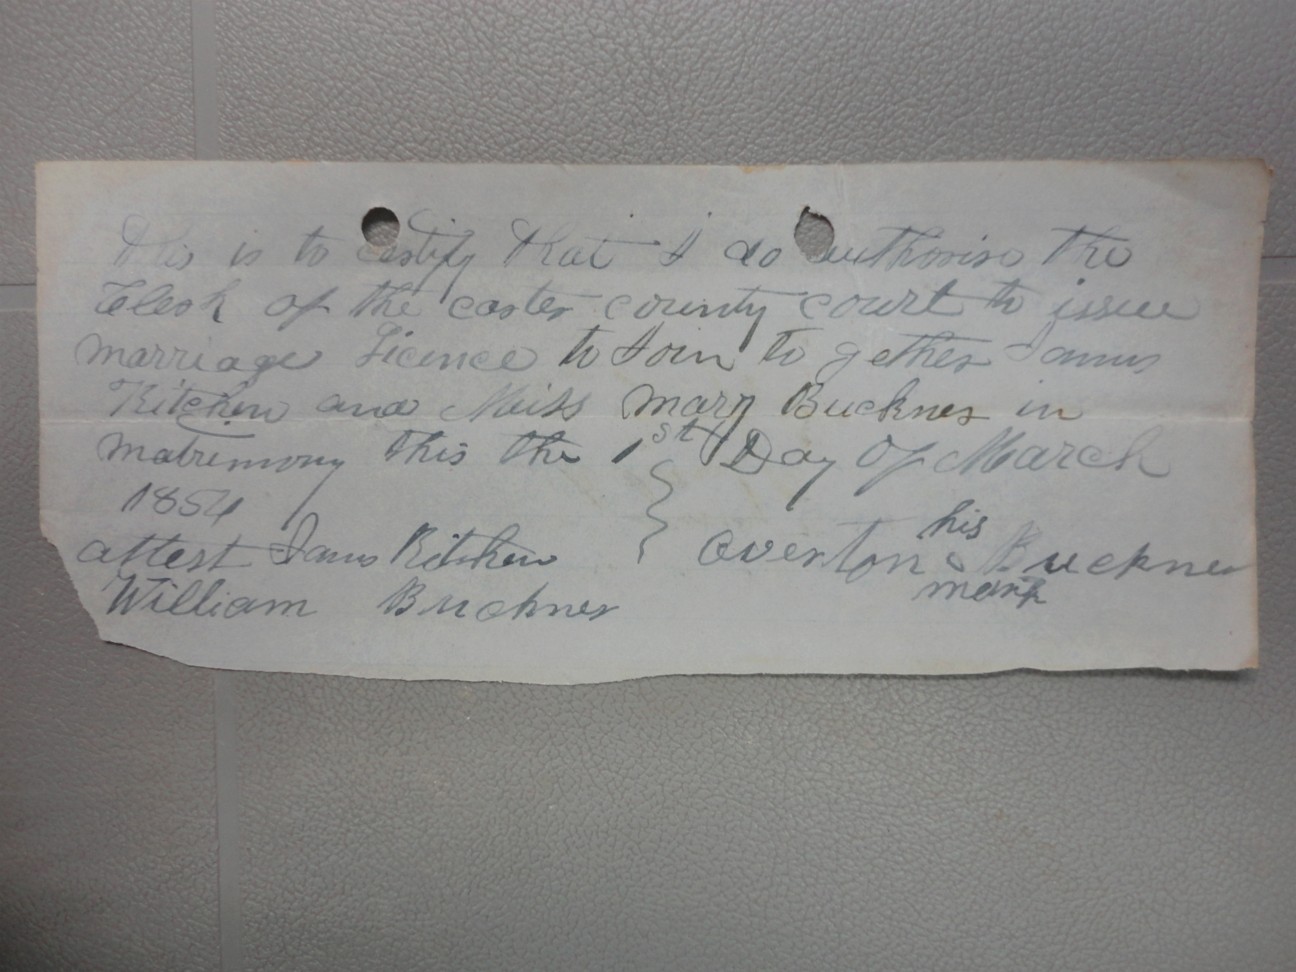 this is to certify that I do authorise the
Clerk of the carter county court to issue
marriage Licence to Join to gether James
Kitchen and Miss Mary Buckner in
matrimony this the 1st Day of March
1854
attest James Kitchen } Overton his Buckner
mark
William Buckner